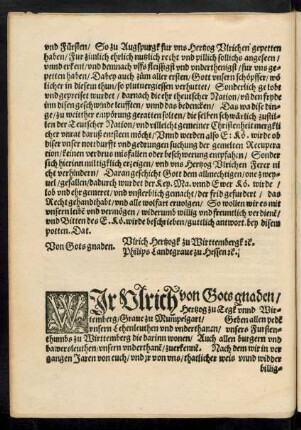 vnd Fürsten / So zu Augspurgk fur vns Hertzog Vlrichen gepetten
haben / Fur zimlich ehrlich nutzlich recht vnd pillich sollichs angesehen /
vnnd erkent / vnd demnach vffs fleissigst vnd vnderthenigst / fur vns ge-
petten haben / Dabey auch zům aller ersten / Gott vnsern schöpffer / wö-
licher in diesem thun / so plutuergiessen verhuttet / Sonderlich gelobt
vnd gepreiset wurdet / darnach die ehr theutscher Nation / enden frydde
inn disen geschwinde leufften / vnnd das bedencken / Das wa dise din-
ge / zu weitter empörung geratten solten / die selben schwärlich zustil-
len der Teutscher Nation / vnd villeicht gemeiner Christenheit merckli-
cher vnrat darus entsteen möcht / Vnnd werden also E. Kö. wirde ob
diser vnser notturfft vnd gedrungen suchung der gemelten Recupera-
tion / keinen verdrus misfallen oder beschwerung entpfahen / Sonder
sich hierinn miltigklich erzeigen / vnd vns Hertzog Vlrichen ferrer nicht
verhindern / Daran geschicht Gott dem allmechtigen / one zwey-
uel / gefallen / dadurch wurdet der Key. Ma. vnnd Ewer Kö. wirde / lob
vnd ehr gemeret / vnd vnserblich gemacht / der frid gefürdert / das
Recht gehandthabt / vnd alle wolfart erfolget / So wollen wir es mit
vnsern leibe vnd vermögen / widerumb willig vnd freuntlich verdienē /
vnd Bitten des E. Kö. wirde beschriben / guttlich antwort. bey disem
potten. Dat.
Von Gots gnaden. Vlrich Hertzogk zu Wirttembergk ꝛc.
Philips Landtgraue zu Hessen ꝛc.
WIr Vlrich von Gots gnaden /
Hertzog zu Tegk vnnd Wir-
temberg / Graue zu Mumpelgart / Geben allen vnd
vnsern Lehenleuthen vnd vnderthanen / vnsers Fursten-
thumbs zu Wirttemberg die darinn wonen / Auch allen burgern vnd
bawersleuthen / vnsern vnderthanē / zuerkenne. Nach dem wir in ver
gangen Jaren von euch / vnd jr von vns / thatlicher weis vnnd widder
billig-